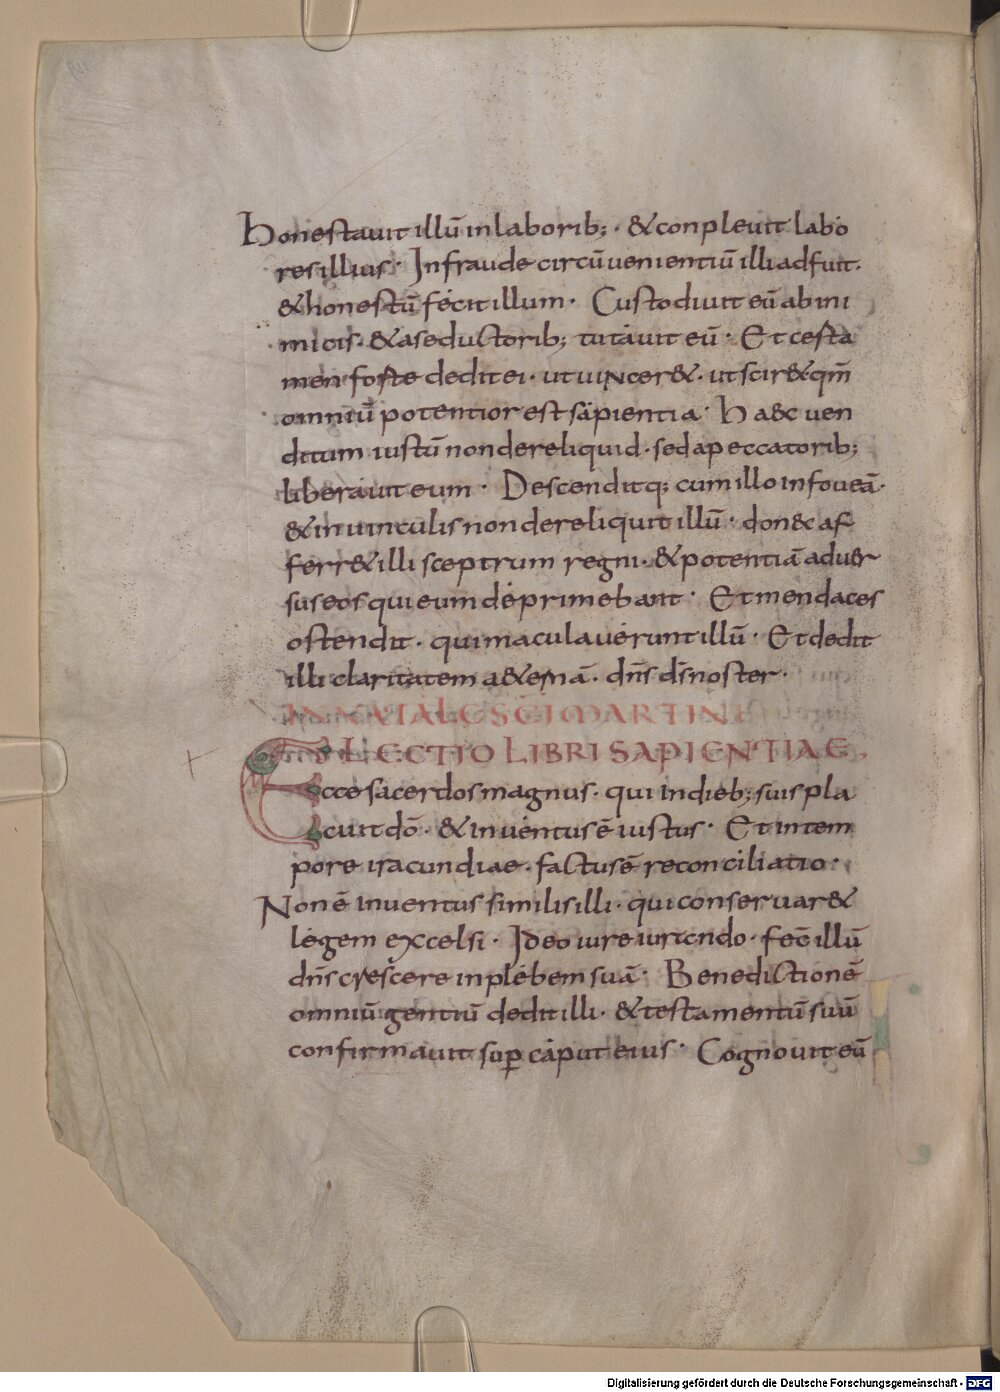 Honestauit illū inlaborib; · & conpleuit labo
res illius · Infraude circūuenientiū illi adfuit.
& honestū fecit illum · Custodiuit eū abini
micis · & aseductorib; tutauit eū · Et certa
men forte dedit ei · ut uinceret · ut sciret qm̄
omniū potentior est sapientia · Haec uen
ditum iustū non dereliquid · sed apeccatorib;
liberauit eum · Descenditq; cum illo infoueā ·
& in uinculis non dereliquit illū · donec af
ferret illi sceptrum regni · & potentiā aduer
sus eos qui eum deprimebant · Et mendaces
ostendit · qui maculauerunt illū · Et dedit
illi claritatem aeternā · dn̄s ds̄ noster ·
IN NATALE SC̄I MARTINI
LECTIO LIBRI SAPIENTIAE ·
Ecce sacerdos magnus · qui in dieb; suis pla
cuit dō · & inuentus ē iustus · Et in tem
pore iracundiae · factus ē reconciliatio ·
Non ē inuentus similis illi · qui conseruaret
legem excelsi · Ideo iure iurando · fec̄ illū
dn̄s crescere in plebem suā · Benedictionē
omniū gentiū dedit illi · & testamentū suū
confirmauit sup̄ caput eius · Cognouit eū
Digitalisierung gefördert durch die Deutsche Forschungsgemeinschaft - DFG